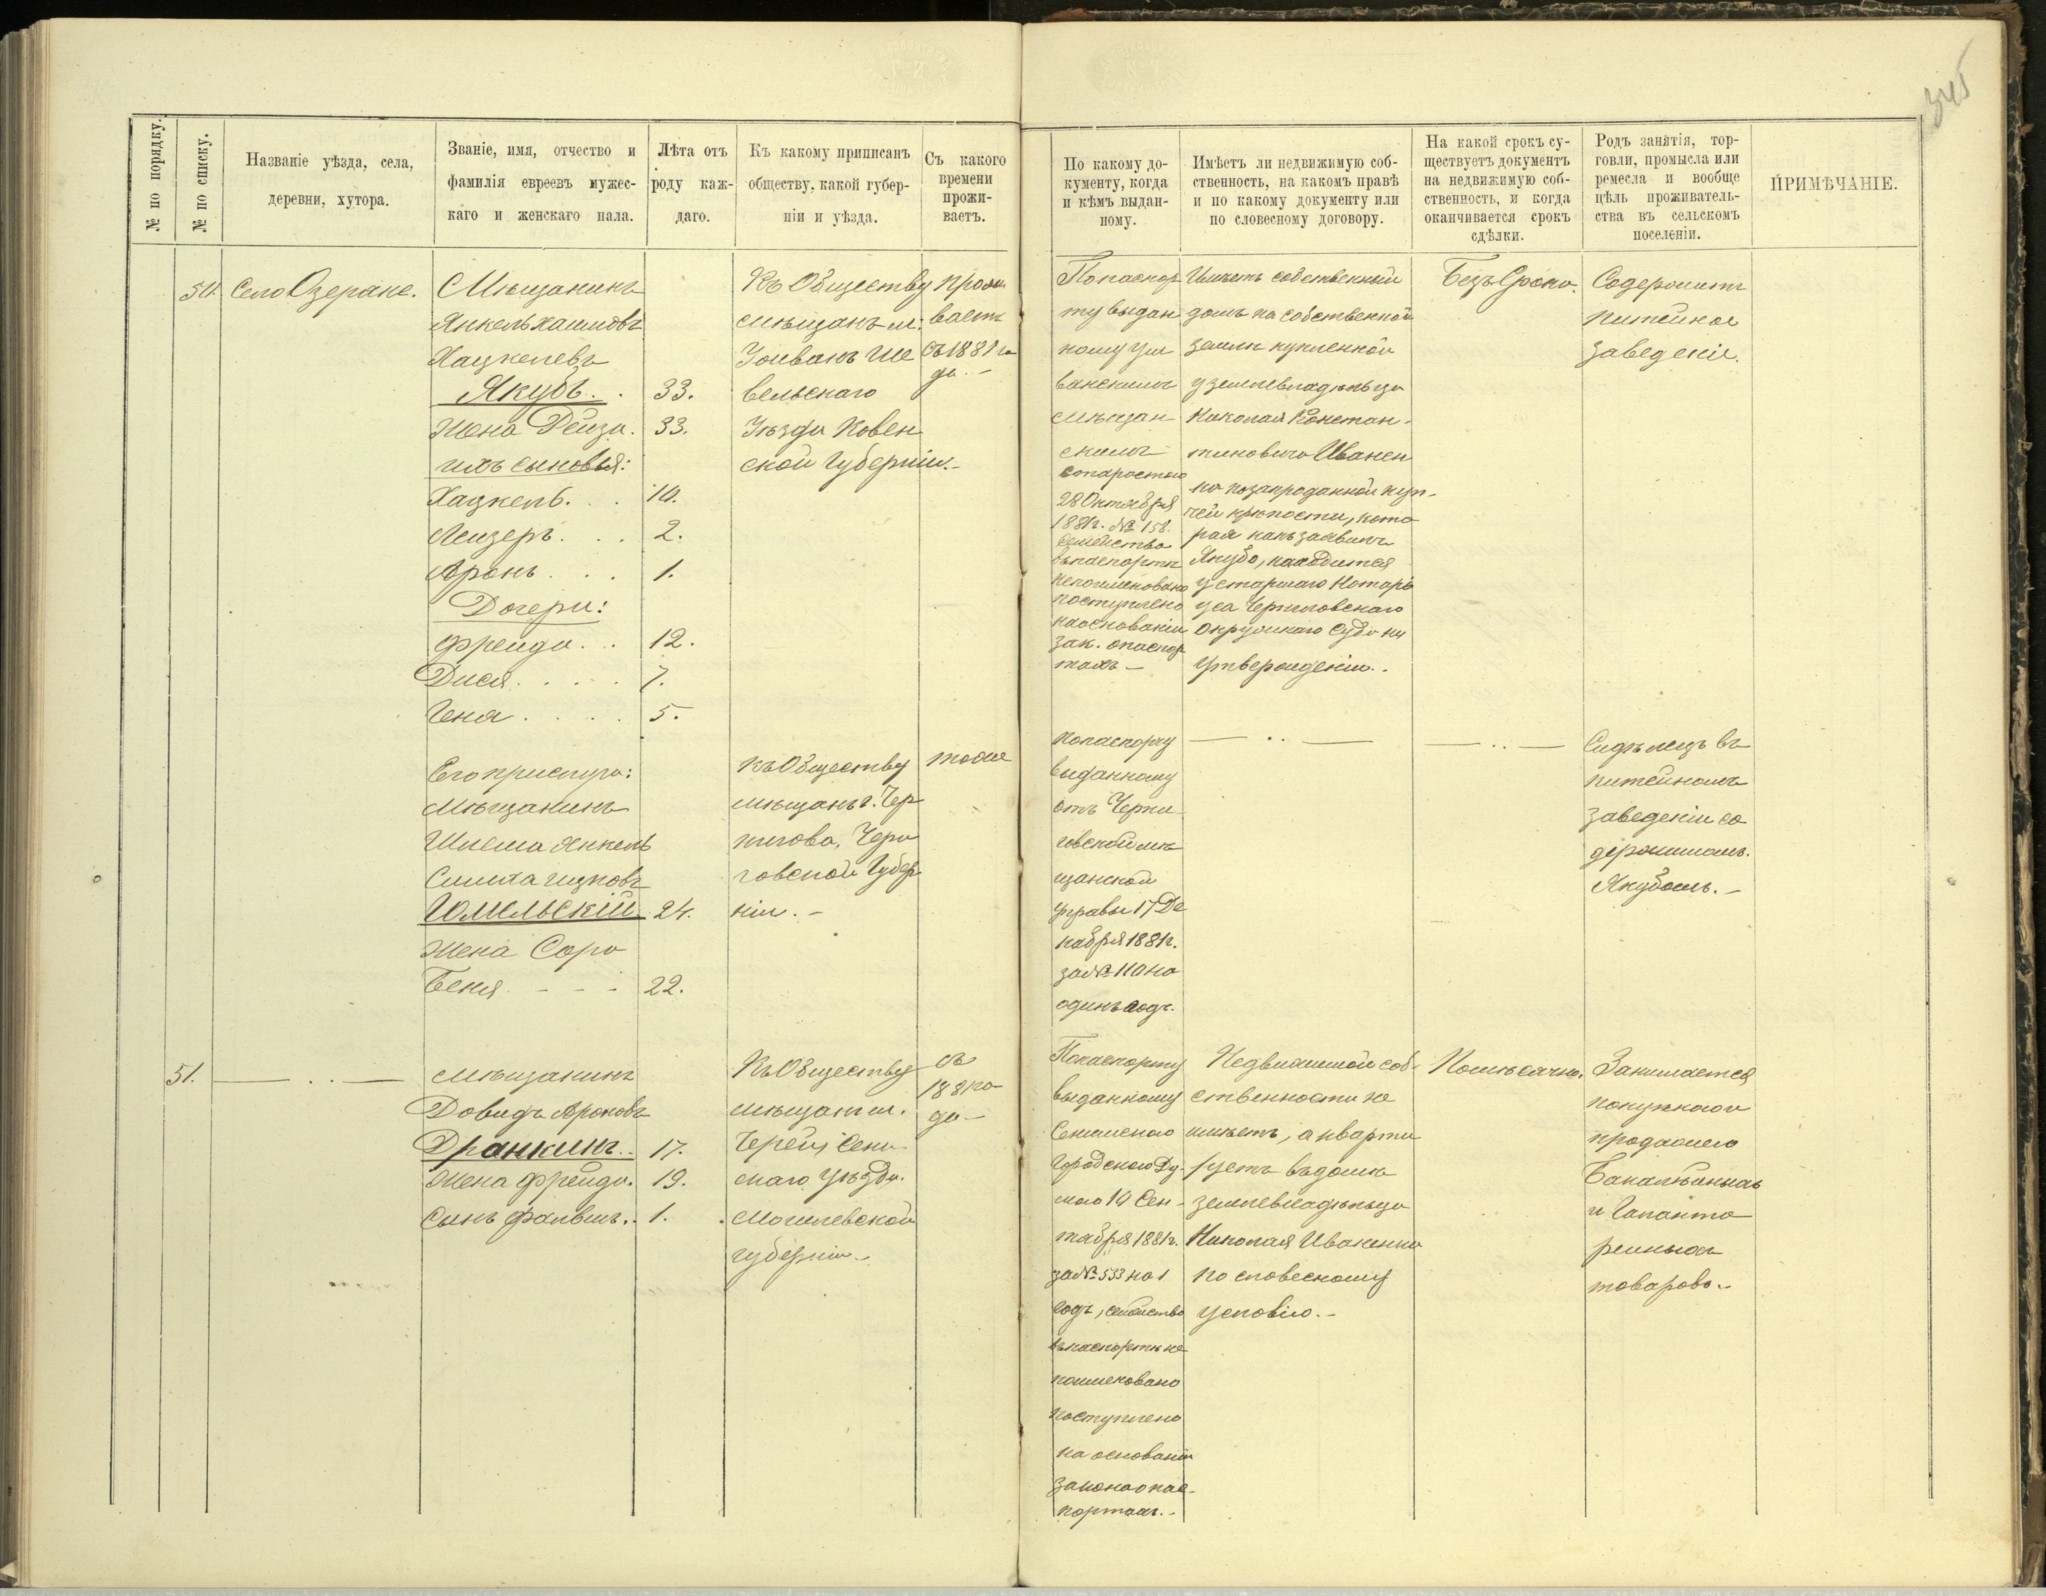 345
№ по порядку.
№ по списку.
Названіе уѣзда, села,
деревни, хутора.
Званіе, имя, отчество и
фамилія евреевъ мужес-
каго и женскаго пала.
Лѣта отъ
роду каж-
даго.
Къ какому приписанъ
обществу, какой губер-
ніи и уѣзда.
Съ какого
времени
прожи-
ваетъ.
По какому до-
кументу, когда
и кѣмъ выдан-
ному.
Имѣетъ ли недвижимую соб-
ственность, на какомъ правѣ
и по какому документу или
по словесному договору.
На какой срокъ су-
ществуетъ документъ
на недвижимую соб-
ственность, и когда
оканчивается срокъ
сдѣлки.
Родъ занятія, тор-
говли, промысла или
ремесла и вообще
цѣль проживатель-
ства въ сельскомъ
поселеніи.
ПРИМѢЧАНІЕ.
50.
Село Озеряне.
Мѣщанинъ
Янкель Хаимовъ
Хацкелевъ
Якубъ. . 33.
Жена Дейза. 33.
ихъ сыновья:
Хацкель. . . 10.
Лейзеръ. . . 2.
Аронъ. . . 1.
Дочери:
Фрейда. . . 12.
Дися. . . . . 7.
Геня. . . . 5.
Къ Обществу
мѣщанъ м:
вельскаго
Уѣзда Ковен
ской Губерніи.-
прожи
ваетъ
съ 1881 го
да.-
По паспор
ту выдан
ному
ванскимъ
мѣщан
скимъ
старостою
28 Октября
1881г. № 158.
Семейство
въ паспортѣ
непоименовано
поступлено
на основаніи
зак. о паспор
тахъ-
Имѣетъ собственный
домъ на собственной
землѣ купленной
у землевладѣльца
Николая Констан-
тиновича Иванен
ко по запроданной куп-
чей крѣпости, кото
рая какъ заявилъ
Якубъ, находится
у старшаго Нотарі
уса Черниговскаго
Окружнаго Суда на
утвержденіи.-
Безъ Срока.
Содержитъ
питейное
заведеніе.
Его прислуга:
Мѣщанинъ
Шлема Янкель
Гомельскій 24.
Жена Сора
Беня - - - 22.
Къ Обществу
мѣщанъ г. Чер
нигова, Черни
говской Губер
ніи.-
тоже
По паспорту
выданному
отъ Черни
говской мѣ
щанской
управы 17 Де
кабря 1881г.
за № 110 на
одинъ годъ.
— .. —
— .. —
Сидѣлецъ въ
питейномъ
заведеніи со
держимомъ
Якубомъ.-
51.
— .. —
Мѣщанинъ
Довидъ Ароновъ
Дранкинъ. . 17.
Жена Фрейда. 19.
Сынъ Файвишъ. . 1.
Къ Обществу
мѣщан м.
Череи, Сени
скаго Уѣзда.
Могилевской
губерніи.-
съ
1881 го
да-
По паспорту
выданному
Сеннскою
Городскою Ду-
мою 10 Сен-
тября 1881г.
за № 533 на 1
годъ, семейство
въ паспортѣ не
поименовано
поступлено
на основаніи
закона о пас-
портахъ.-
Недвижимой соб-
ственности не
имѣетъ, а кварти
руетъ въ домѣ
землевладѣльца
Николая Иваненко
по словесному
условію.-
Помѣсячно.
Занимается
покупкою и
продажею
Бакалѣйныхъ
и Галанте
рейныхъ
товаровъ.-